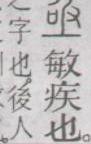 亟敏疾也。
之字也。後人